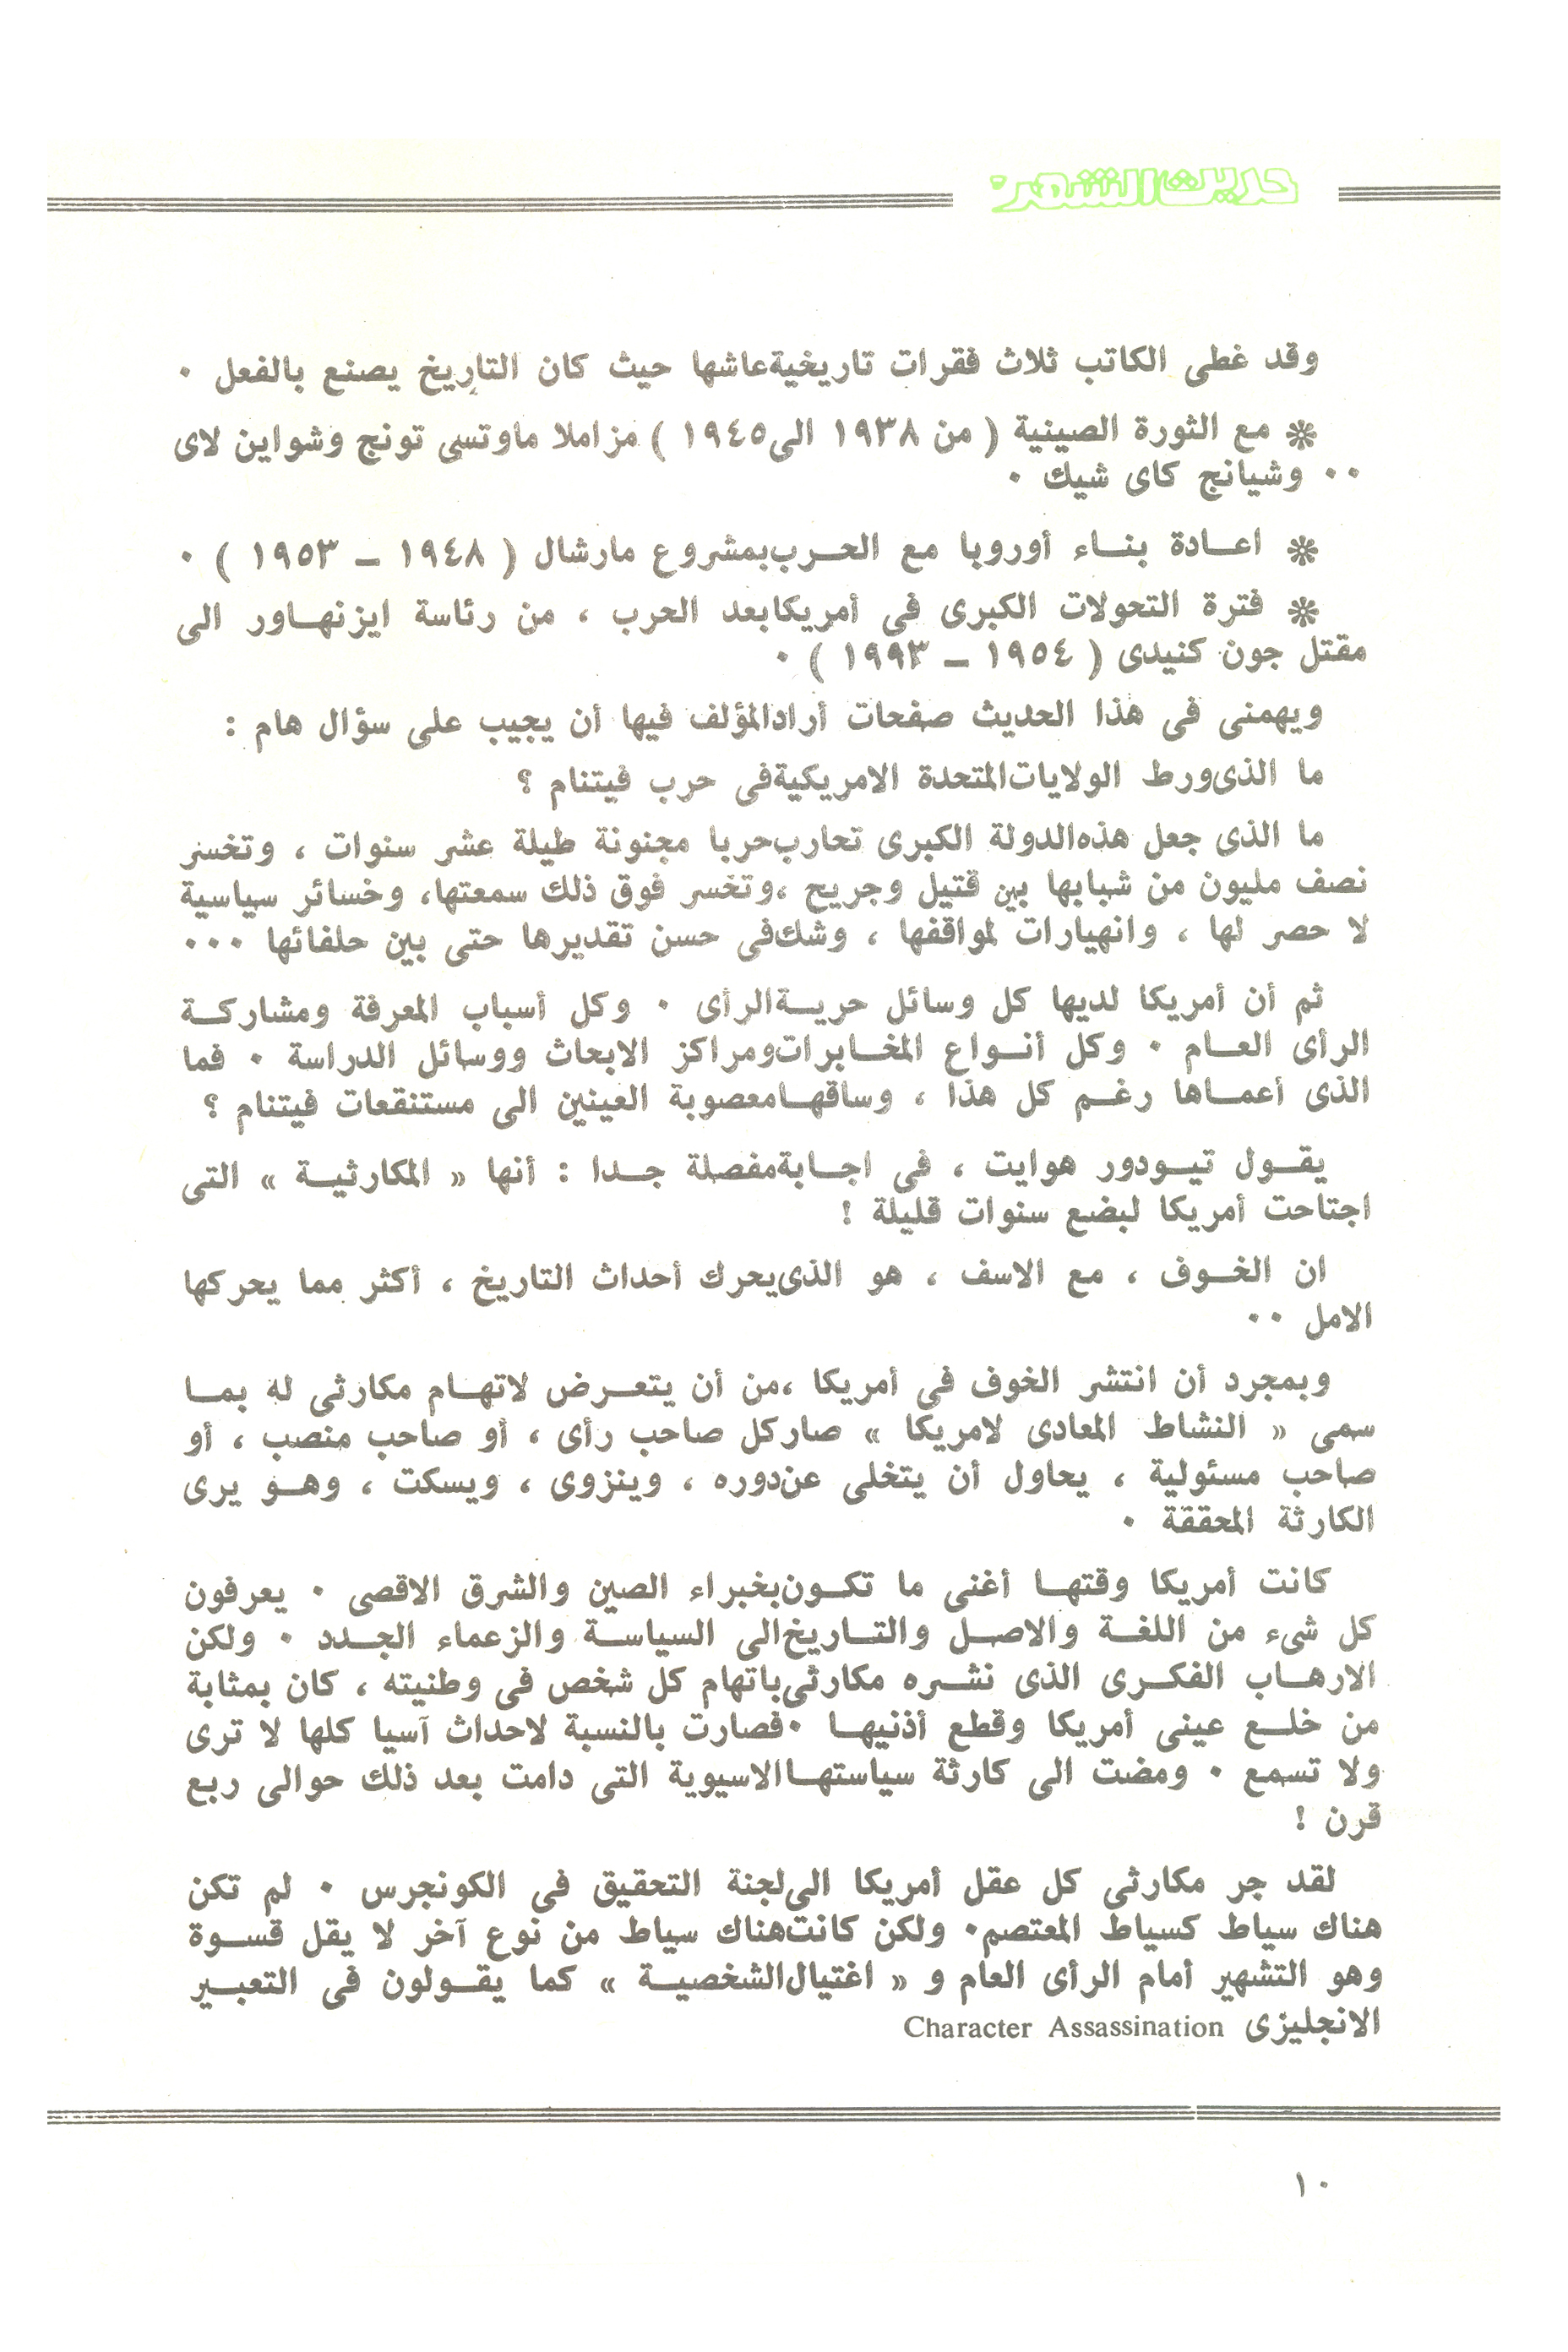 حديث الشهر
وقد غطى الكاتب ثلاث فقرات تاريخية عاشها حيث كان التاريخ يصنع بالفعل ٠
❊ مع الثورة الصينية ( من ١٩٣٨ الى ١٩٤٥ ) مزاملا ماوتسى تونج وشواين لاى
٠٠ وشيانج كاى شيك ٠
❊ اعادة بناء أوروبا مع الحرب بمشروع مارشال ( ١٩٤٨ – ١٩٥٣ ) ٠
❊ فترة التحولات الكبرى فى أمريكا بعد الحرب ، من رئاسة ايزنهاور الى
مقتل جون كنيدى ( ١٩٥٤ – ١٩٩٣ ) ٠
ويهمنى فى هذا الحديث صفحات أراد المؤلف فيها أن يجيب على سؤال هام :
ما الذى ورط الولايات المتحدة الامريكية فى حرب فيتنام ؟
ما الذى جعل هذه الدولة الكبرى تحارب حربا مجنونة طيلة عشر سنوات ، وتخسر
نصف مليون من شبابها بين قتيل وجريح ، وتخسر فوق ذلك سمعتها، وخسائر سياسية
لا حصر لها ، وانهيارات لمواقفها ، وشك فى حسن تقديرها حتى بين حلفائها ٠٠٠
ثم أن أمريكا لديها كل وسائل حرية الرأى ٠ وكل أسباب المعرفة ومشاركة
الرأى العام ٠ وكل أنواع المخابرات ومراكز الابحاث ووسائل الدراسة ٠ فما
الذى أعماها رغم كل هذا ، وساقها معصوبة العينين الى مستنقعات فيتنام ؟
يقول تيودور هوايت ، فى اجابة مفصلة جدا : أنها « المكارثية » التى
اجتاحت أمريكا لبضع سنوات قليلة !
ان الخوف ، مع الاسف ، هو الذى يحرك أحداث التاريخ ، أكثر مما يحركها
الامل ٠٠
وبمجرد أن انتشر الخوف فى أمريكا ، من أن يتعرض لاتهام مكارثى له بما
سمى « النشاط المعادى لامريكا » صار كل صاحب رأى ، أو صاحب منصب ، أو
صاحب مسئولية ، يحاول أن يتخلى عن دوره ، وينزوى ، ويسكت ، وهو يرى
الكارثة المحققة ٠
كانت أمريكا وقتها أغنى ما تكون بخبراء الصين والشرق الاقصى ٠ يعرفون
كل شىء من اللغة والاصل والتاريخ الى السياسة والزعماء الجدد ٠ ولكن
الارهاب الفكرى الذى نشره مكارثى باتهام كل شخص فى وطنيته ، كان بمثابة
من خلع عينى أمريكا وقطع أذنيها ٠ فصارت بالنسبة لاحداث آسيا كلها لا ترى
ولا تسمع ٠ ومضت الى كارثة سياستها الاسيوية التى دامت بعد ذلك حوالى ربع
قرن !
لقد جر مكارثى كل عقل أمريكا الى لجنة التحقيق فى الكونجرس ٠ لم تكن
هناك سياط كسياط المعتصم٠ ولكن كانت هناك سياط من نوع آخر لا يقل قسوة
وهو التشهير أمام الرأى العام و « اغتيال الشخصية » كما يقولون فى التعبير
الانجليزى Character Assassination
١٠